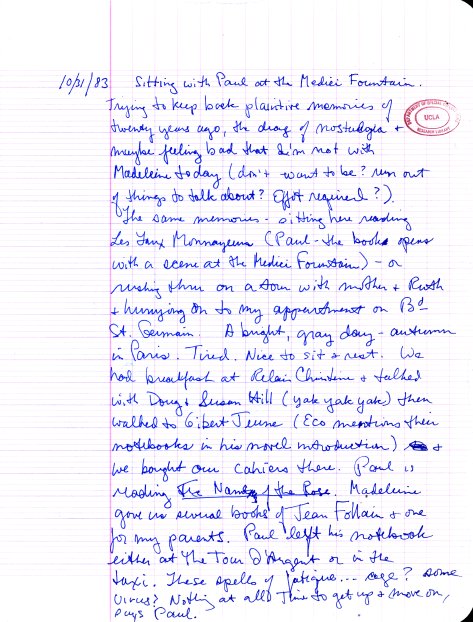 10/31/83 Sitting with Paul at the Medici Fountain.
Trying to keep back plaintive memories of
twenty years ago, the drag of nostalgia +
maybe feeling bad that I'm not with
Madeleine today (don't want to be? run out
of things to talk about? Effort required?).
The same memories - sitting here reading
Les Faux Monnayeurs (Paul - the book opens
with a scene at the Medici Fountain) - or
rushing thru on a tour with mother + Ruth
+ hurrying on to my appointment on Bd
St. Germain. A bright, gray day - autumn
in Paris. Tired. Nice to sit + rest. We
had breakfast at Relais Christine + talked
with Doug + Susan Hill (yak yak yak) then
walked to Gibert Jeune (Eco mentions their
notebooks in his novel introduction) +
we bought our cahiers there. Paul is
reading The Name of the Rose. Madeleine
gave us several books of Jean Follain + one
for my parents. Paul left his notebook
either at The Tour D'Argent or in the
taxi. These spells of fatigue... age? Some
virus? Nothing at all? Time to get up + move on,
says Paul.
DEPARTMENT OF SPECIAL
UCLA
RESEARCH LIBRARY